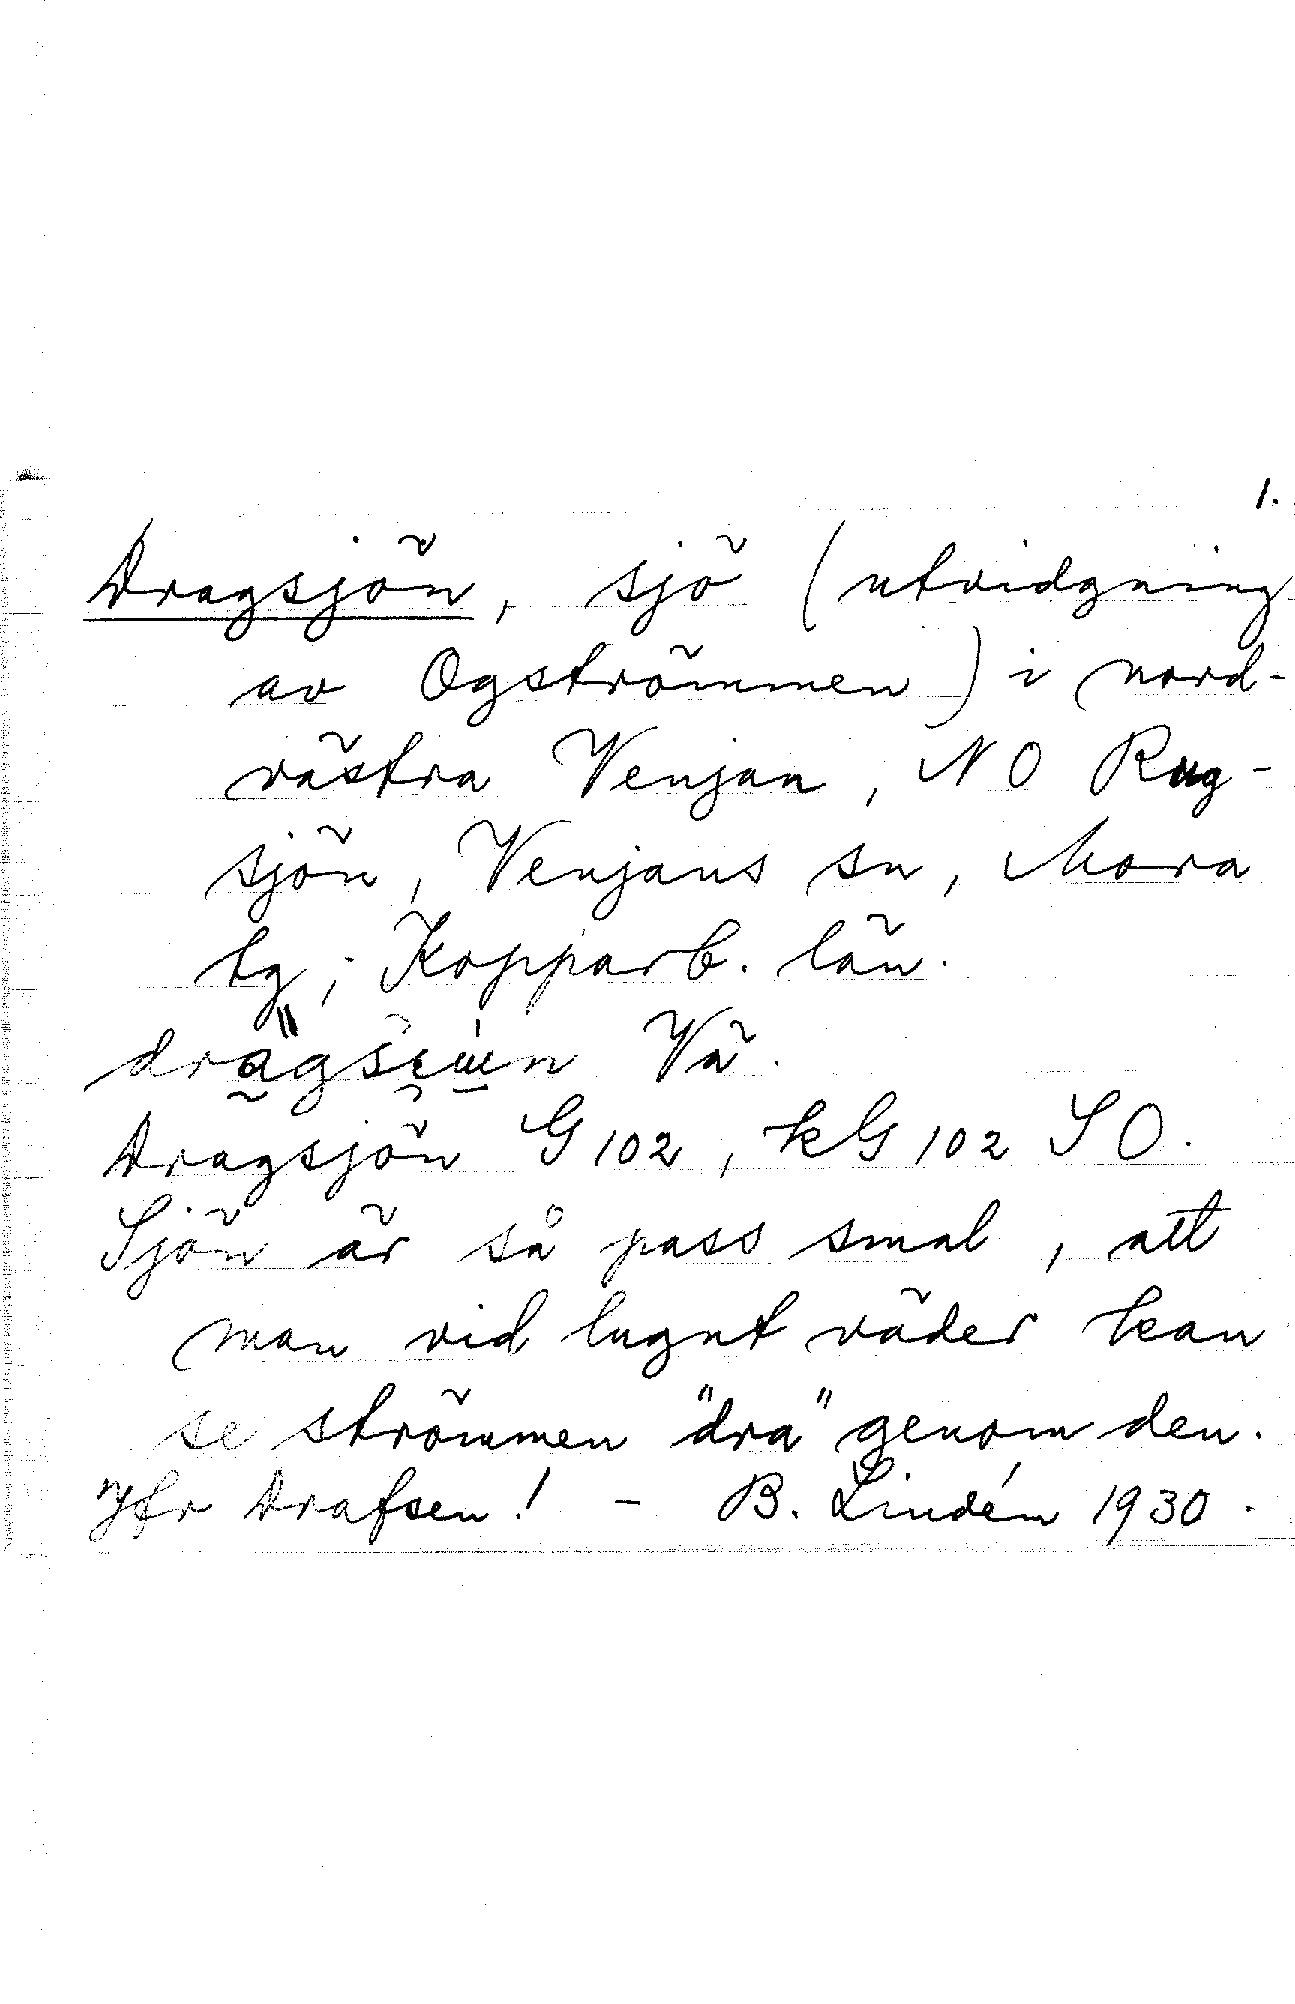 1.
Dragsjön, sjö (utvidgning
av Ogströmmen) i nord-
västra Venjan, NO Rug-
sjön, Venjans sn, Mora
tg; Kopparb. län.
Vä.
Dragsjön G 102, kG 102 SO.
Sjön är så pass smal, att
man vid lugnt väder kan
se strömmen "dra" genom den.
Jfr Drafsen! – B. Lindén 1930.